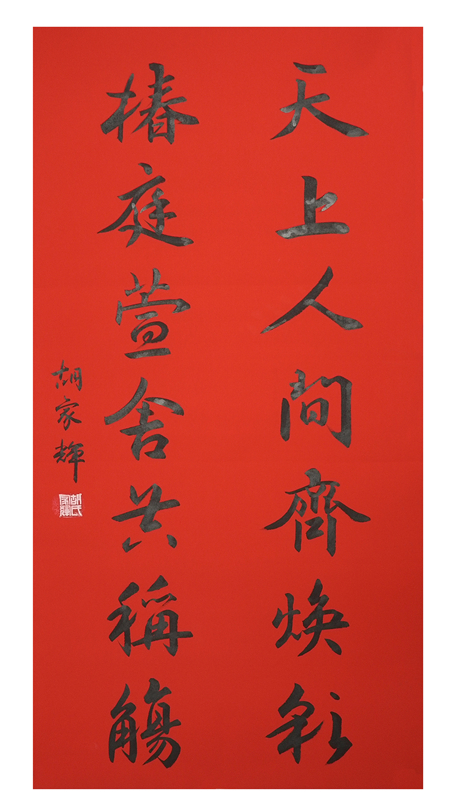 天上人間齊煥彩
椿庭萱舍共稱觴
胡家輝